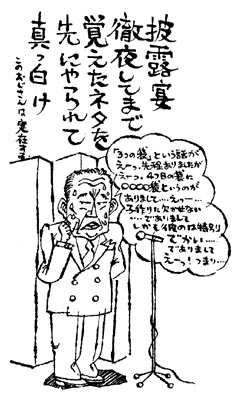 披露宴
徹夜してまで
覚えたネタを
先にやられて
真っ白け
このおじさんは
「3つの袋」という話が
えーっ。先程ありましたが
えーっ。4つ目の袋に
○○○○袋というのが
ありまして……えっー…
子作りに欠かせない
……でありまして
しかも彼のは特別
でかい……
でありまして
えーっ！つまり…